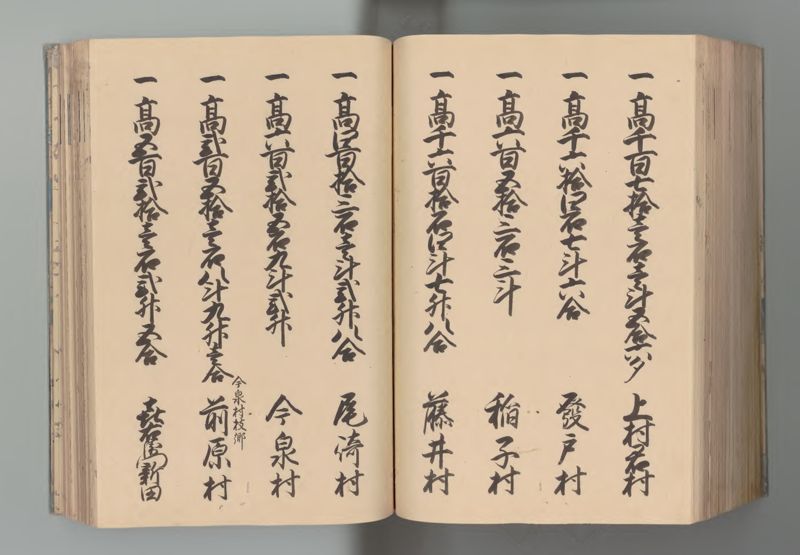 一高千百七拾壱石壱斗五合六夕 上村君村
一高千六拾四石七斗六合 發戸村
一高六百五拾三石三斗 稲子村
一高千六百拾石四斗七升八合 藤井村
一高四百拾三石壱斗弐升八合 尾﨑村
一高六百弐拾五石九斗弐升 今泉村
今泉村枝郷
一高弐百五拾壱石八斗九升壱合 前原村
一高五百弐拾壱石弐升五合 新田